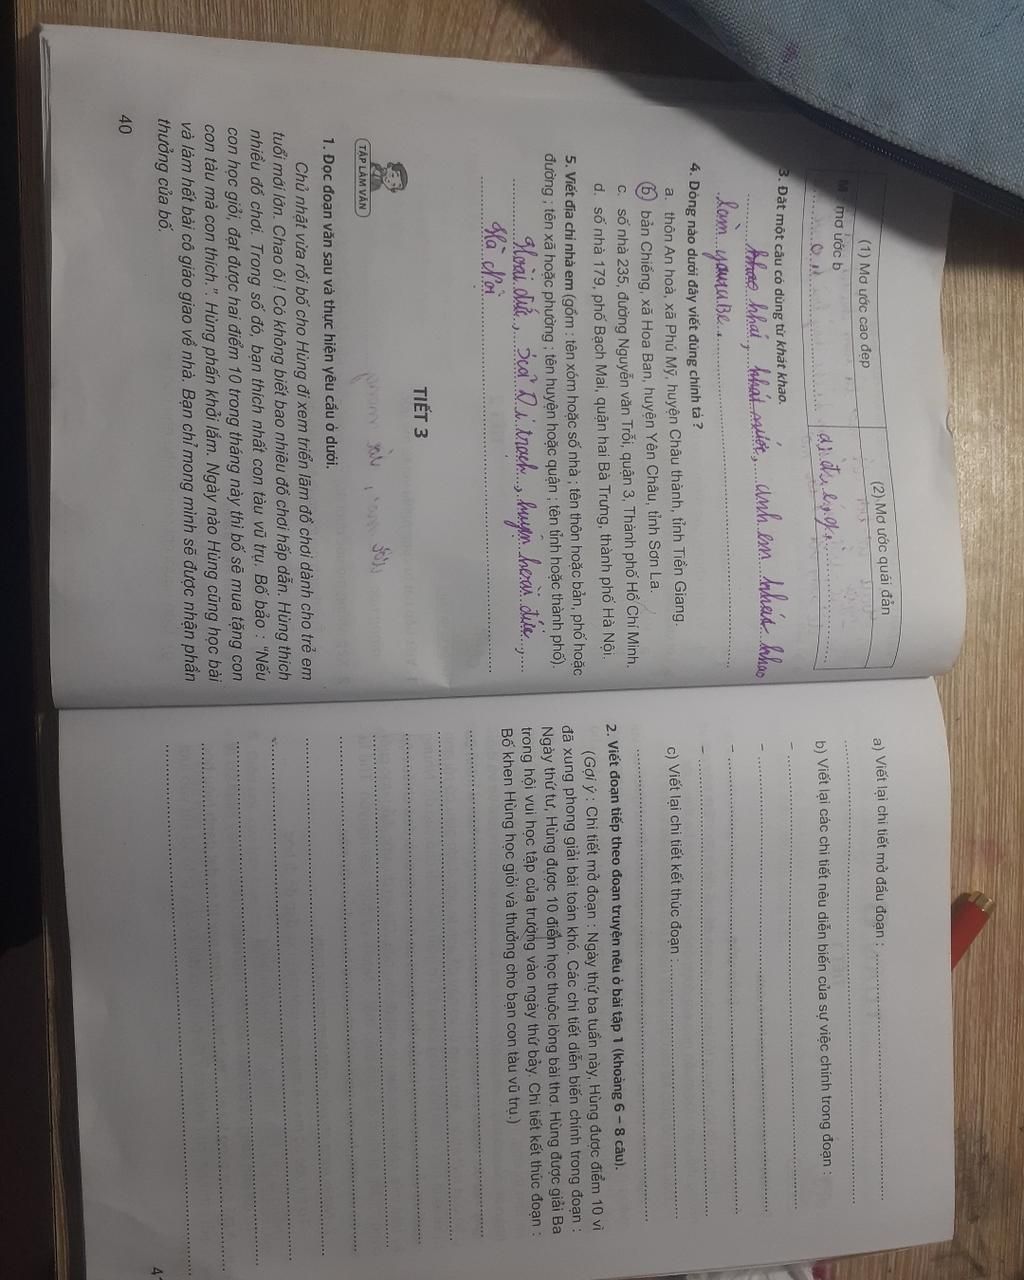 (1) Mơ ước cao đẹp
(2) Mơ ước quái đản
M : mơ ước b
3. Đặt một câu có dùng từ khát khao.
khao khái, khát nước, anh em khát khao
làm youtuBe.
4. Dòng nào dưới đây viết đúng chính tả ?
a. thôn An hoà, xã Phú Mỹ, huyện Châu thành, tỉnh Tiền Giang.
b bản Chiềng, xã Hoa Ban, huyện Yên Châu, tỉnh Sơn La.
c. số nhà 235, đường Nguyễn văn Trỗi, quận 3, Thành phố Hồ Chí Minh.
d. số nhà 179, phố Bạch Mai, quận hai Bà Trưng, thành phố Hà Nội.
5. Viết địa chỉ nhà em (gồm : tên xóm hoặc số nhà ; tên thôn hoặc bản, phố hoặc
đường ; tên xã hoặc phường ; tên huyện hoặc quận ; tên tỉnh hoặc thành phố).
Hoài đức, xã Di trạch, huyện hoài đức,
Hà Nội
TIẾT 3
TẬP LÀM VĂN
1. Đọc đoạn văn sau và thực hiện yêu cầu ở dưới.
Chủ nhật vừa rồi bố cho Hùng đi xem triển lãm đồ chơi dành cho trẻ em
tuổi mới lớn. Chao ôi ! Có không biết bao nhiêu đồ chơi hấp dẫn. Hùng thích
nhiều đồ chơi. Trong số đó, bạn thích nhất con tàu vũ trụ. Bố bảo : "Nếu
con học giỏi, đạt được hai điểm 10 trong tháng này thì bố sẽ mua tặng con
con tàu mà con thích.". Hùng phấn khởi lắm. Ngày nào Hùng cũng học bài
và làm hết bài cô giáo giao về nhà. Bạn chỉ mong mình sẽ được nhận phần
thưởng của bố.
40
a) Viết lại chi tiết mở đầu đoạn :
b) Viết lại các chi tiết nêu diễn biến của sự việc chính trong đoạn :
–
–
–
–
c) Viết lại chi tiết kết thúc đoạn :
2. Viết đoạn tiếp theo đoạn truyện nêu ở bài tập 1 (khoảng 6 – 8 câu).
(Gợi ý : Chi tiết mở đoạn : Ngày thứ ba tuần này, Hùng được điểm 10 vì
đã xung phong giải bài toán khó. Các chi tiết diễn biến chính trong đoạn :
Ngày thứ tư, Hùng được 10 điểm học thuộc lòng bài thơ. Hùng được giải Ba
trong hội vui học tập của trường vào ngày thứ bảy. Chi tiết kết thúc đoạn :
Bố khen Hùng học giỏi và thưởng cho bạn con tàu vũ trụ.)